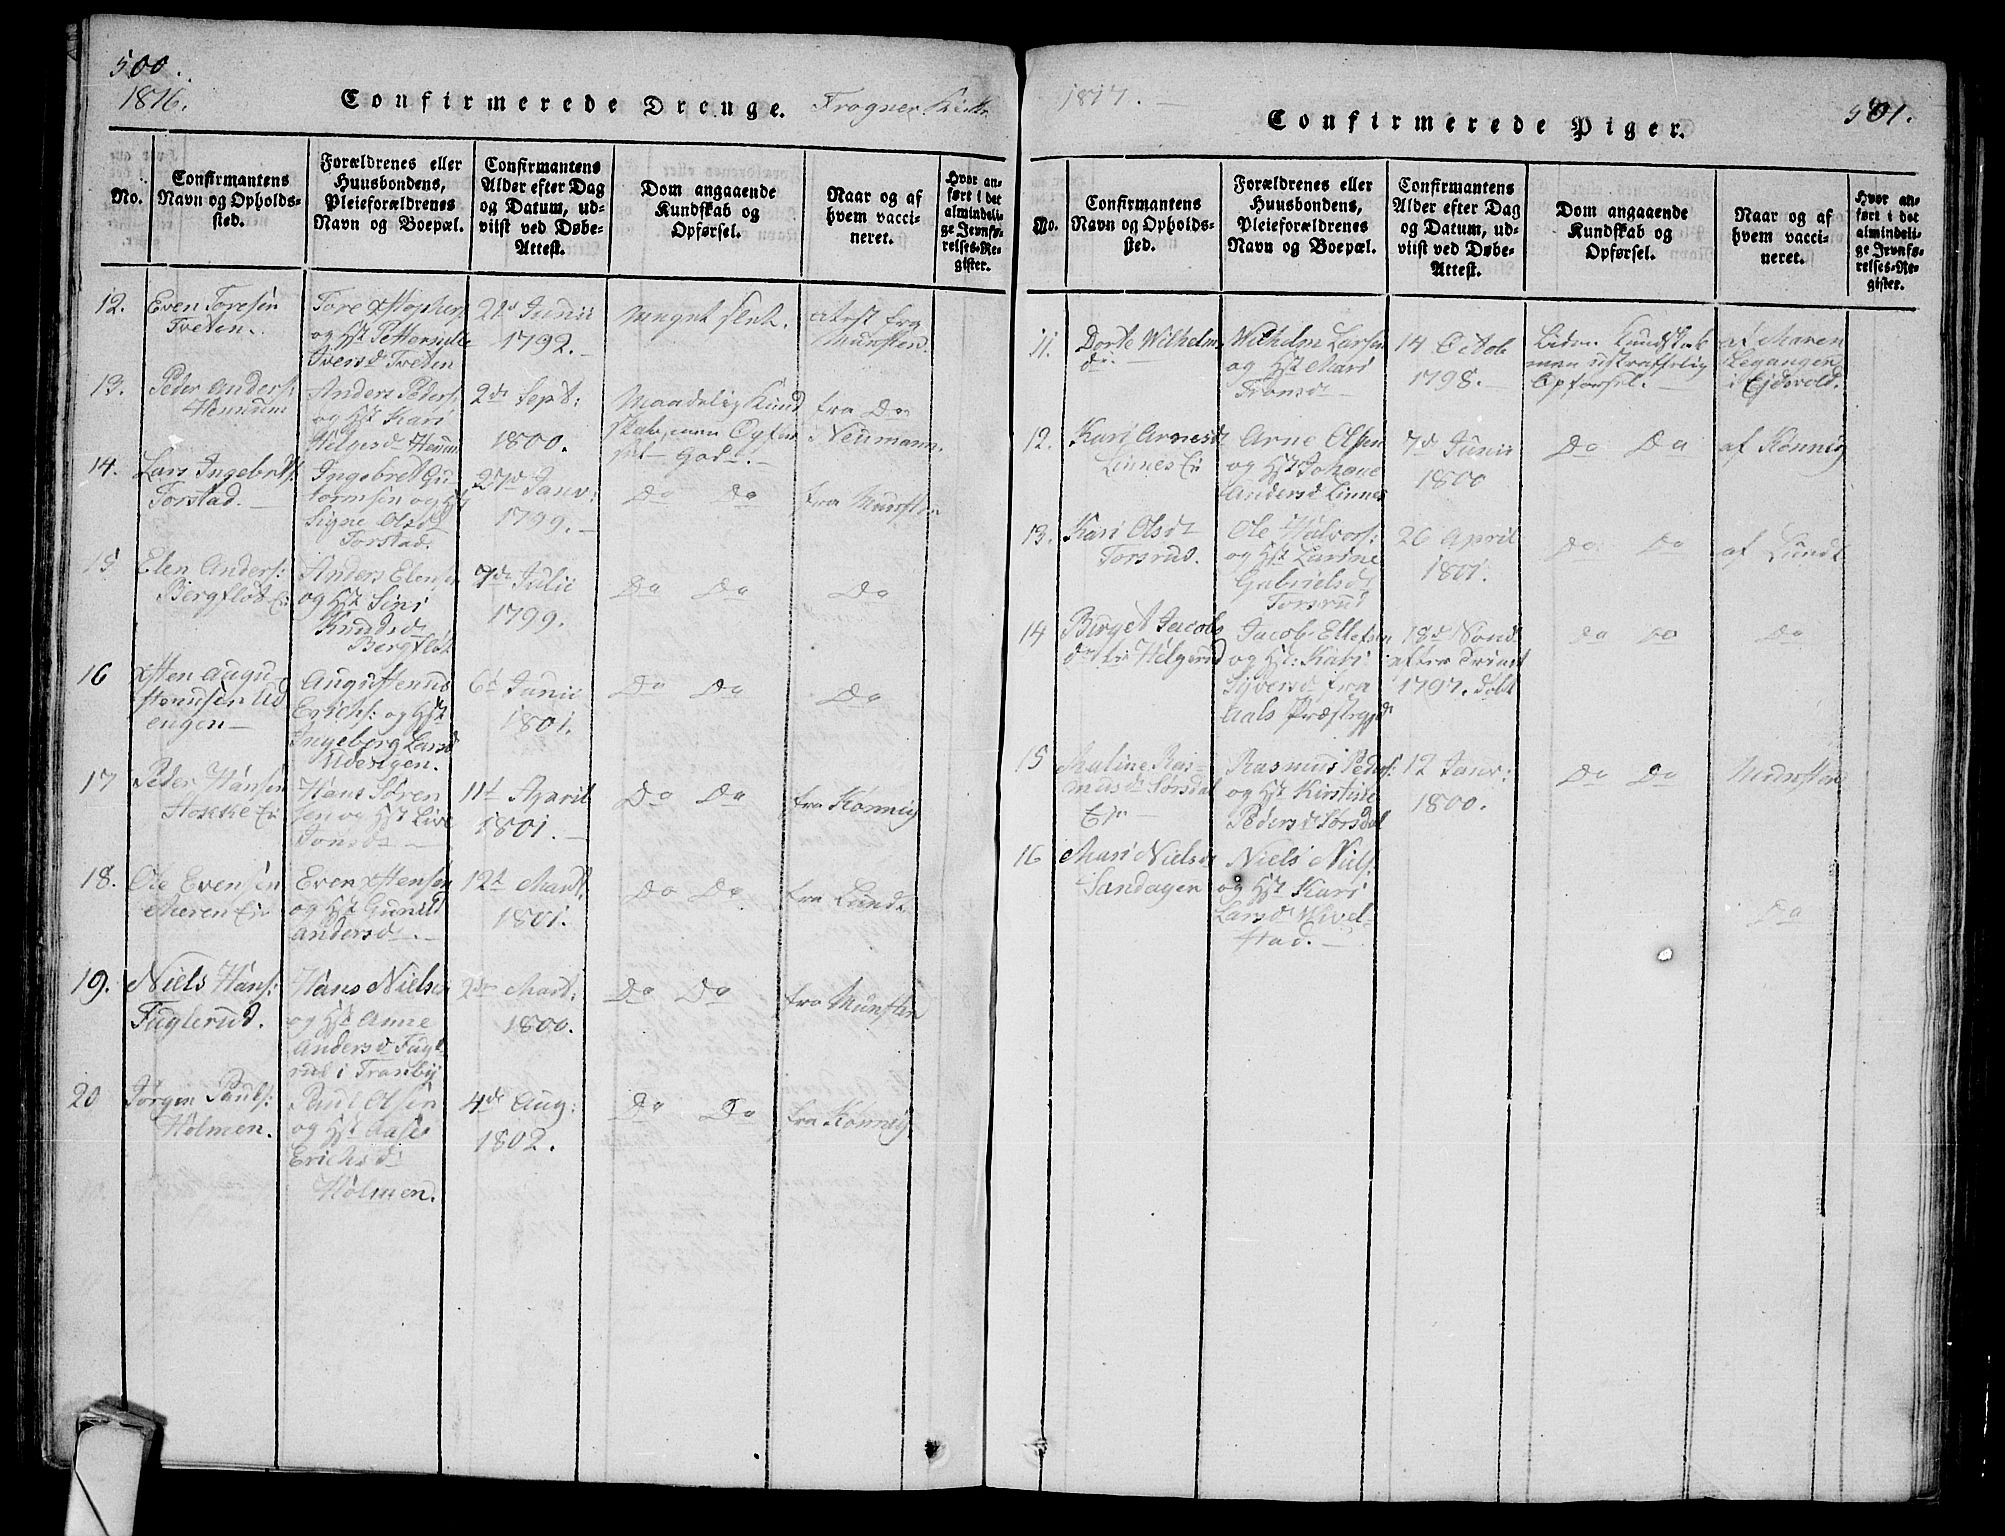 500.
1816.
Confirmerede Drenge.
Frogner Kirke
No.
Confirmantens
Navn og Opholds-
sted.
Forældrenes eller
Huusbondens,
Pleieforældrenes
Navn og Boepæl.
Confirmantens
Alder efter Dag
og Datum, ud-
viist ved Døbe-
Attest.
Dom angaaende
Kundskab og
Opførsel.
Naar og af
hvem vacci-
neret.
Hvor an-
ført i det
almindeli-
ge Jevnfø-
relses-Re-
gister.
12.
Even Toresen
Tveten.
Tore
og Hst
Iversd Tveten
Junii
1792.
meget slet.
Attest fra
Munster.
13.
Peder Anders:
Hennum
Anders Peders:
og Hst Kari
Helgesd Hennum
2de Sept:
1800.
Maadelig Kund
skab, men Opfør
sel God.
fra Do
Neumann.
14.
Lars Ingebrets:
Torstad.
Ingebret Gu
tormsen og Hst
Signe Olsd
Torstad.
27d Janv:
1799.
Do Do
fra Munster
15
Elen Anders:
Bergflot Ei
Anders Elensen
og Hst Sini
Knudsd
Bergflot
7de Julii
1799.
Do Do
Do
16
Xsten Augu
stenusen Ud
engen
Augustenus
Erichs: og Hst
Ingeborg Larsd
Udengen.
6d Junii
1801.
Do Do
Do
17
Peder Hansen
Ei
Hans Søren
sen og Hst Live
Jonsd
11t April
1801.
Do Do
fra Kønnig
18.
Ole Evensen
Meren Ei
Even Xstensen
og Hst Gunild
Andersd
12t Mart
1801.
Do Do
fra Lund
19.
Niels Hans:
Fuglerud.
Hans Nielsen
og Hst Anne
Andersd Fugl
rud i Tranby
2de Mart:
1800.
Do Do
fra Munster
20
Jørgen Pauls:
Holmen.
Paul Olsen
og Hst Aase
Erichsd
Holmen.
4de Aug:
1802.
Do Do
fra Kønnig
1817.
Confirmerede Piger.
501.
No.
Confirmantens
Navn og Opholds-
sted.
Forældrenes eller
Huusbondens,
Pleieforældrenes
Navn og Boepæl.
Confirmantens
Alder efter Dag
og Datum, ud-
viist ved Døbe-
Attest.
Dom angaaende
Kundskab og
Opførsel.
Naar og af
hvem vacci-
neret.
Hvor an-
ført i det
almindeli-
ge Jevnfø-
relses-Re-
gister.
11.
Dorte Wilhelms
d
Wilhelm Larsen
og Hst Mari
Tronsd
14 Octob
1798.
Liden Kundskab
men ustraffelig
Opførsel.
af Maren
Legangen
i Ejdsvold.
12.
Kari Arnesd
Linnes Ei
Arne Olsen
og Hst Johane
Andersd Linnes
7d Junii
1800
Do Do
af Kønnig
13.
Kari Olsd
Torsrud.
Ole Halvors:
og Hst Larine
Gabrielsd
Torsrud
20 April
1801.
Do Do
af Lundt
14
Birget Jacobs
Helgerud
Jacob Ellefsen
og Hst: Kari
Sijversd fra
Aals Præstegjd
18d Sønd
after Trinit
1797. døbt
Do Do
Do
15
Maline Ras-
musd Sørsdal
Ei
Rasmus Peders:
og Hst Kirstine
Pedersd Sørsdal
12 Janv:
1800.
Do Do
Munster
16
Mari Nielsd
Sandagen
Niels Niels:
og Hst Kari
Larsd Hivel-
stad.
Do